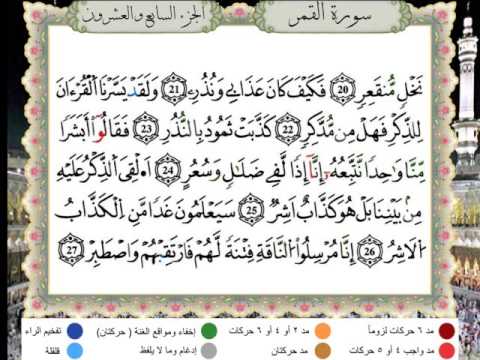 سورة القمر
الجزء السابع والعشرون
نَخْلٍ مُّنقَعِرٍ (20) فَكَيْفَ كَانَ عَذَابِي وَنُذُرِ (21) وَلَقَدْ يَسَّرْنَا الْقُرْءَانَ
لِلذِّكْرِ فَهَلْ مِن مُّدَّكِرٍ (22) كَذَّبَتْ ثَمُودُ بِالنُّذُرِ (23) فَقَالُوا أَبَشَرًا
مِّنَّا وَاحِدًا نَّتَّبِعُهُ إِنَّا إِذًا لَّفِي ضَلَالٍ وَسُعُرٍ (24) أَءُلْقِيَ الذِّكْرُ عَلَيْهِ
مِن بَيْنِنَا بَلْ هُوَ كَذَّابٌ أَشِرٌ (25) سَيَعْلَمُونَ غَدًا مَّنِ الْكَذَّابُ
الْأَشِرُ (26) إِنَّا مُرْسِلُوا النَّاقَةِ فِتْنَةً لَّهُمْ فَارْتَقِبْهُمْ وَاصْطَبِرْ (27)
مد ٦ حركات لزوماً
مد ٢ أو ٤ أو ٦ حركات
إخفاء ومواقع الغنة ( حركتان)
تفخيم الراء
مد واجب ٤ أو ٥ حركات
مد حركتان
إدغام وما لا يلفظ
قلقلة